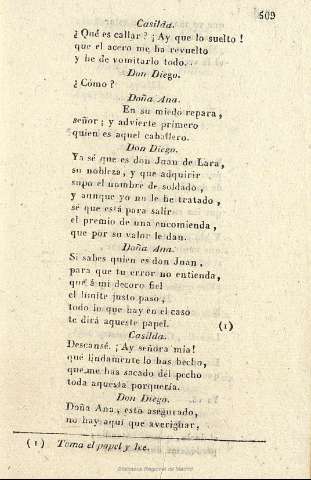 509
Casilda.
¿Qué es callar? ¡Ay que lo suelto!
que el acero me ha revuelto
y he de vomitarlo todo.
Don Diego.
¿Cómo?
Doña Ana.
En su miedo repara,
señor; y advierte primero
quien es aquel caballero.
Don Diego.
Ya sé que es don Juan de Lara,
su nobleza, y que adquirir
supo el nombre de soldado,
y aunque yo no le he tratado,
sé que está para salir
el premio de una encomienda,
que por su valor le dan.
Doña Ana.
Si sabes quien es don Juan,
para que tu error no entienda,
que á mi decoro fiel
el límite justo paso,
todo lo que hay en el caso
te dirá aqueste papel. (1)
Casilda.
Descansé. ¡Ay señora mia!
qué lindamente lo has hecho,
que me has sacado del pecho
toda aquesta porquería.
Don Diego.
Doña Ana, esto asegurado,
no hay aqui que averiguar,
(1) Toma el papel y lee.
Biblioteca Regional de Madrid